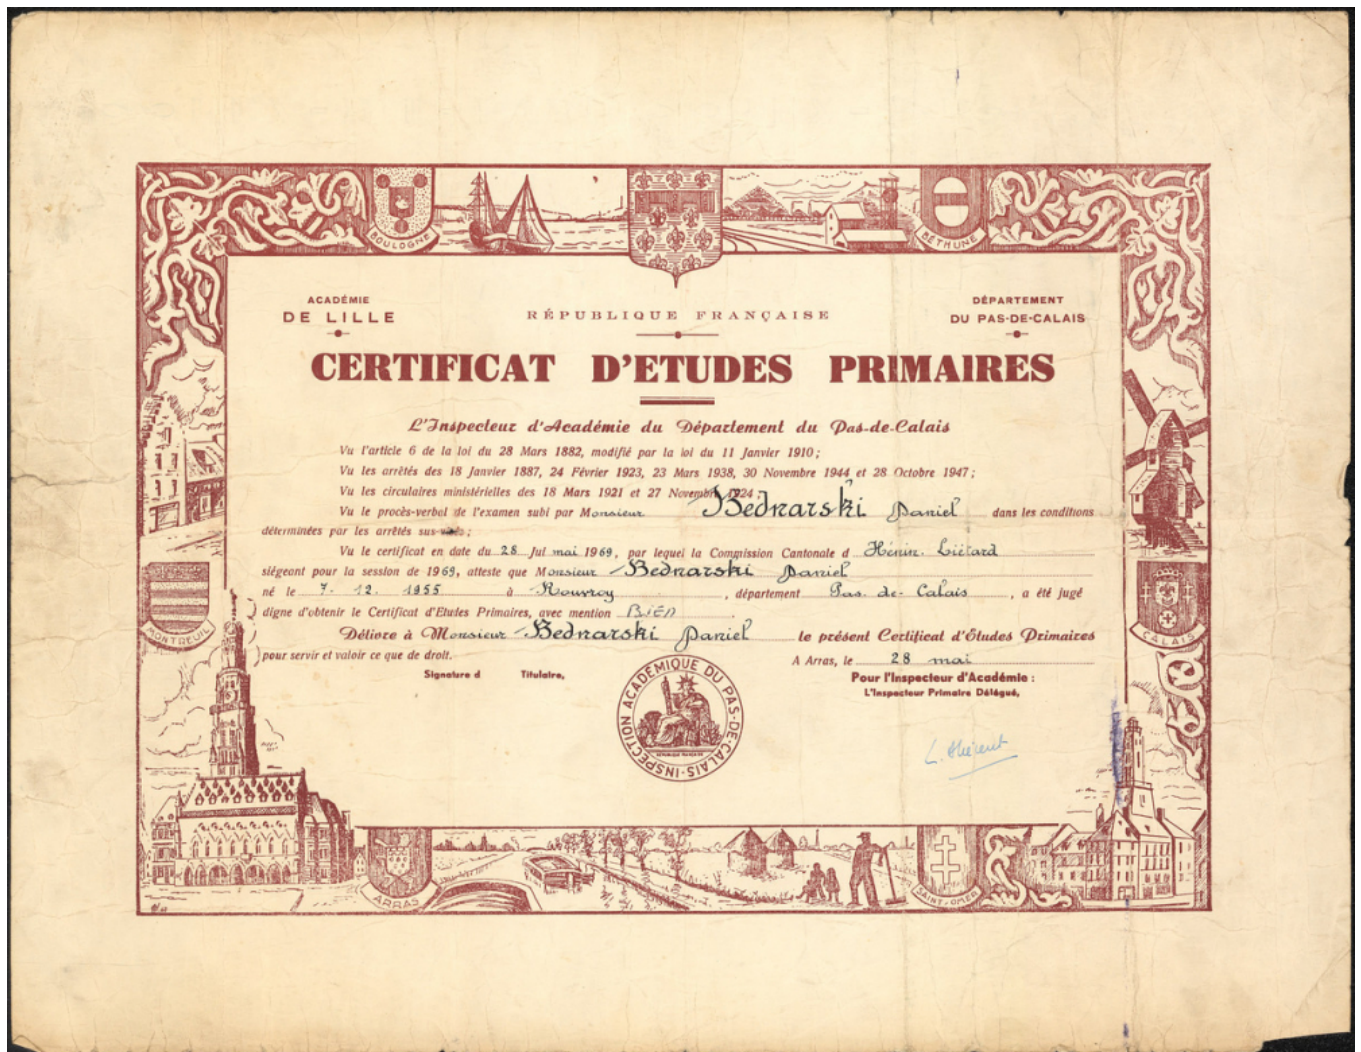 BOULOGNE
BÉTHUNE
ACADÉMIE
DE LILLE
RÉPUBLIQUE FRANÇAISE
DÉPARTEMENT
DU PAS-DE-CALAIS
CERTIFICAT D'ETUDES PRIMAIRES
L'Inspecteur d'Académie du Département du Pas-de-Calais
Vu l'article 6 de la loi du 28 Mars 1882, modifié par la loi du 11 Janvier 1910 ;
Vu les arrêtés des 18 Janvier 1887, 24 Février 1923, 23 Mars 1938, 30 Novembre 1944 et 28 Octobre 1947 ;
Vu les circulaires ministérielles des 18 Mars 1921 et 27 Novembre 1924 ;
Vu le procès-verbal de l'examen subi par Monsieur Bednarski Daniel dans les conditions
déterminées par les arrêtés sus-visés ;
Vu le certificat en date du 28 Jui mai 1969, par lequel la Commission Cantonale d Hénin-Liétard
siégeant pour la session de 1969, atteste que Monsieur Bednarski Daniel
né le 7. 12. 1955 à Rouvroy, département Pas-de-Calais, a été jugé
digne d'obtenir le Certificat d'Etudes Primaires, avec mention BIEN
Délivre à Monsieur Bednarski Daniel le présent Certificat d'Études Primaires
pour servir et valoir ce que de droit.
A Arras, le 28 mai
Signature d Titulaire,
Pour l'Inspecteur d'Académie :
L'Inspecteur Primaire Délégué,
INSPECTION ACADÉMIQUE DU PAS-DE-CALAIS
RÉPUBLIQUE FRANÇAISE
MONTREUIL
CALAIS
ARRAS
SAINT-OMER